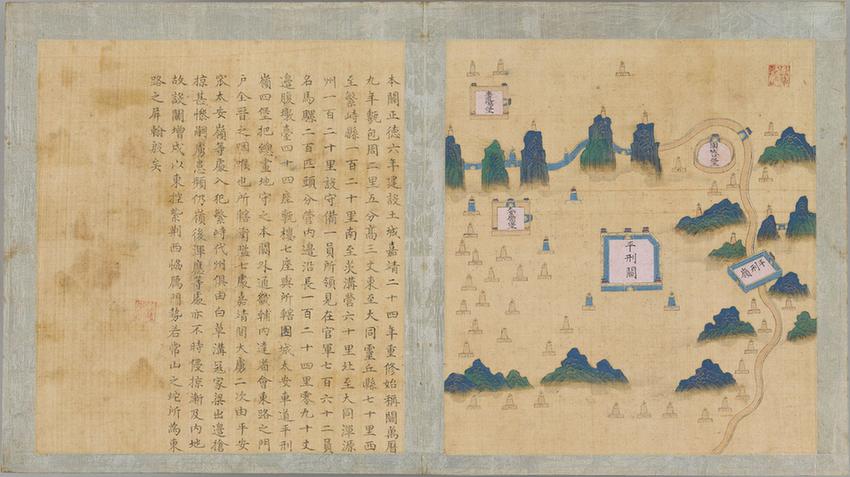 本關正德六年建設土城嘉靖二十四年重修始稱關萬曆
九年甎包周二里五分高三丈東至大同靈丘縣七十里西
至繁峙縣一百二十里南至炭溝營六十里北至大同渾源
州一百二十里設守備一員所領見在官軍七百六十二員
名馬騾二百匹頭分管內邊沿長一百二十四里零九十丈
邊腹墩臺四十四座甎樓七座與所轄團城太安車道平刑
嶺四堡把總畫地守之本關外通畿輔內達省會東路之門
戶全晉之咽喉也所轄衝隘七處嘉靖間大虜二次由平安
窯太安嶺等處入犯繁峙代州俱由白草溝寇家梁出邊搶
掠甚慘嗣虜患頻仍嶺後渾應等處亦不時侵掠漸及內地
故設關增戍以東控紫荊西協鴈門勢若常山之蛇所為東
路之屏翰殷矣
團城堡
車道堡
平刑嶺
平刑關
太安嶺堡